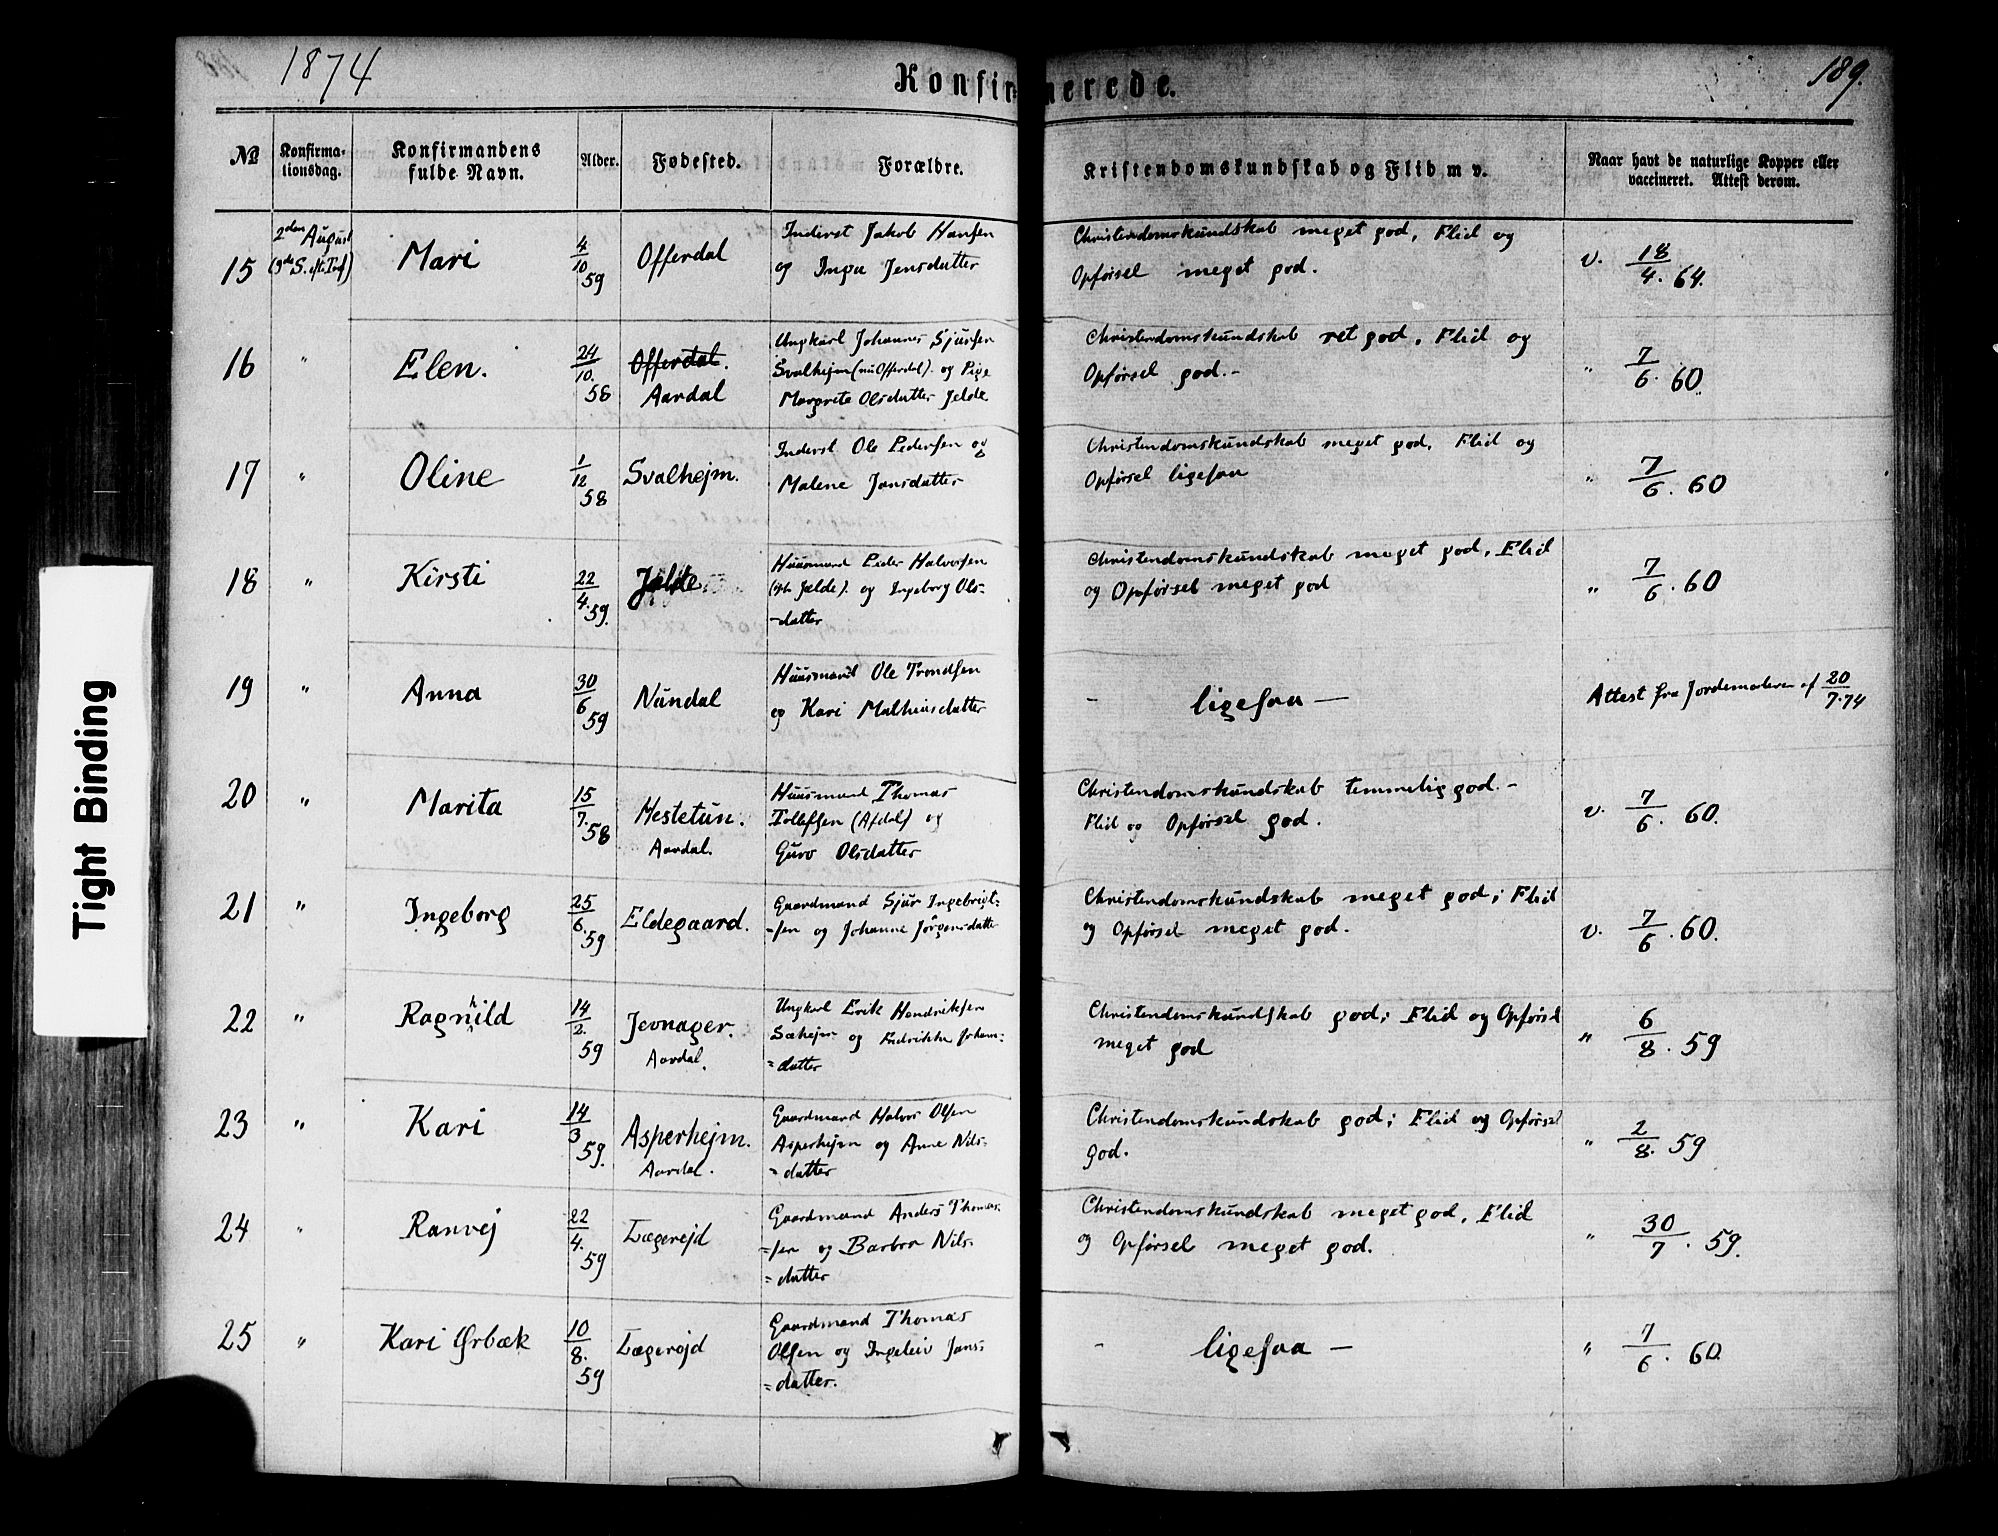 1874
Konfirmerede.
189.
№ Konfirma-
tionsdag. Konfirmandens
fulde Navn. Alder. Fødested. Forældre. Kristendomskundskab og Flid m v. Naar havt de naturlige Kopper eller
vaccineret. Attest derom.
15 2den August
(9de S. eft. Trf.) Mari 4/10 59 Offerdal Inderst Jakob Hansen
og Inga Jensdatter Christendomskundskab meget god, Flid og
Opførsel meget god. v. 18/4. 64.
16 " Elen. 24/10. 58 Offerdal.
Aardal Ungkarl Johannes Sjursen
Svalhejm (nu Offerdal). og Pige
Margrete Olsdatter Jelde Christendomskundskab ret god, Flid og
Opførsel god.- " 7/6. 60
17 " Oline 1/12 58 Svalhejm. Inderst Ole Pedersen og
Malene Jansdatter Christendomskundskab meget god, Flid og
Opførsel ligesaa " 7/6. 60
18 " Kirsti 22/4. 59. Jelde Huusmand Peder Halvorsen
Jelde). og Ingeborg Ols-
-datter Christendomskundskab meget god, Flid
og Opførsel meget god " 7/6. 60
19 " Anna 30/6 59 Nundal Huusmand Ole Trondsen
og Kari Mathiasdatter - ligesaa - Attest fra Jordemoderen af 20/7.74
20 " Marita 15/7. 58 Hestetun.
Aardal. Huusmand Thomas
Tollefsen (Afdal) og
Guro Olsdatter Christendomskundskab temmelig god.-
Flid og Opførsel god. v. 7/6. 60.
21 " Ingeborg 25/6. 59 Eldegaard. Gaardmand Sjur Ingebrigt-
=sen og Johanne Jörgensdatter Christendomskundskab meget god; Flid
og Opførsel meget god. v. 7/6. 60.
22 " Ragnhild 14/2. 59 Jevnager.
Aardal. Ungkarl Erik Hendriksen
Sæhejm og Fredrikke Johans=
=datter Christendomskundskab god; Flid og Opførsel
meget god " 6/8. 59
23 " Kari 14/3 59. Asperhejm.
Aardal. Gaardmand Halvor Olsen
Asperhejm og Anne Nils-
=datter Christendomskundskab god; Flid og Opførsel
god. " 2/8. 59
24 " Ranvej 22/4. 59 Lægerejd Gaardmand Anders Thomas-
=sen og Barbra Nils-
=datter Christendomskundskab meget god, Flid
og Opførsel meget god. " 30/7. 59.
25 " Kari Ørbæk 10/8. 59 Lægerejd Gaardmand Thomas
Olsen og Ingeleiv Jans=
=datter. - ligesaa - " 7/6. 60.
Tight Binding